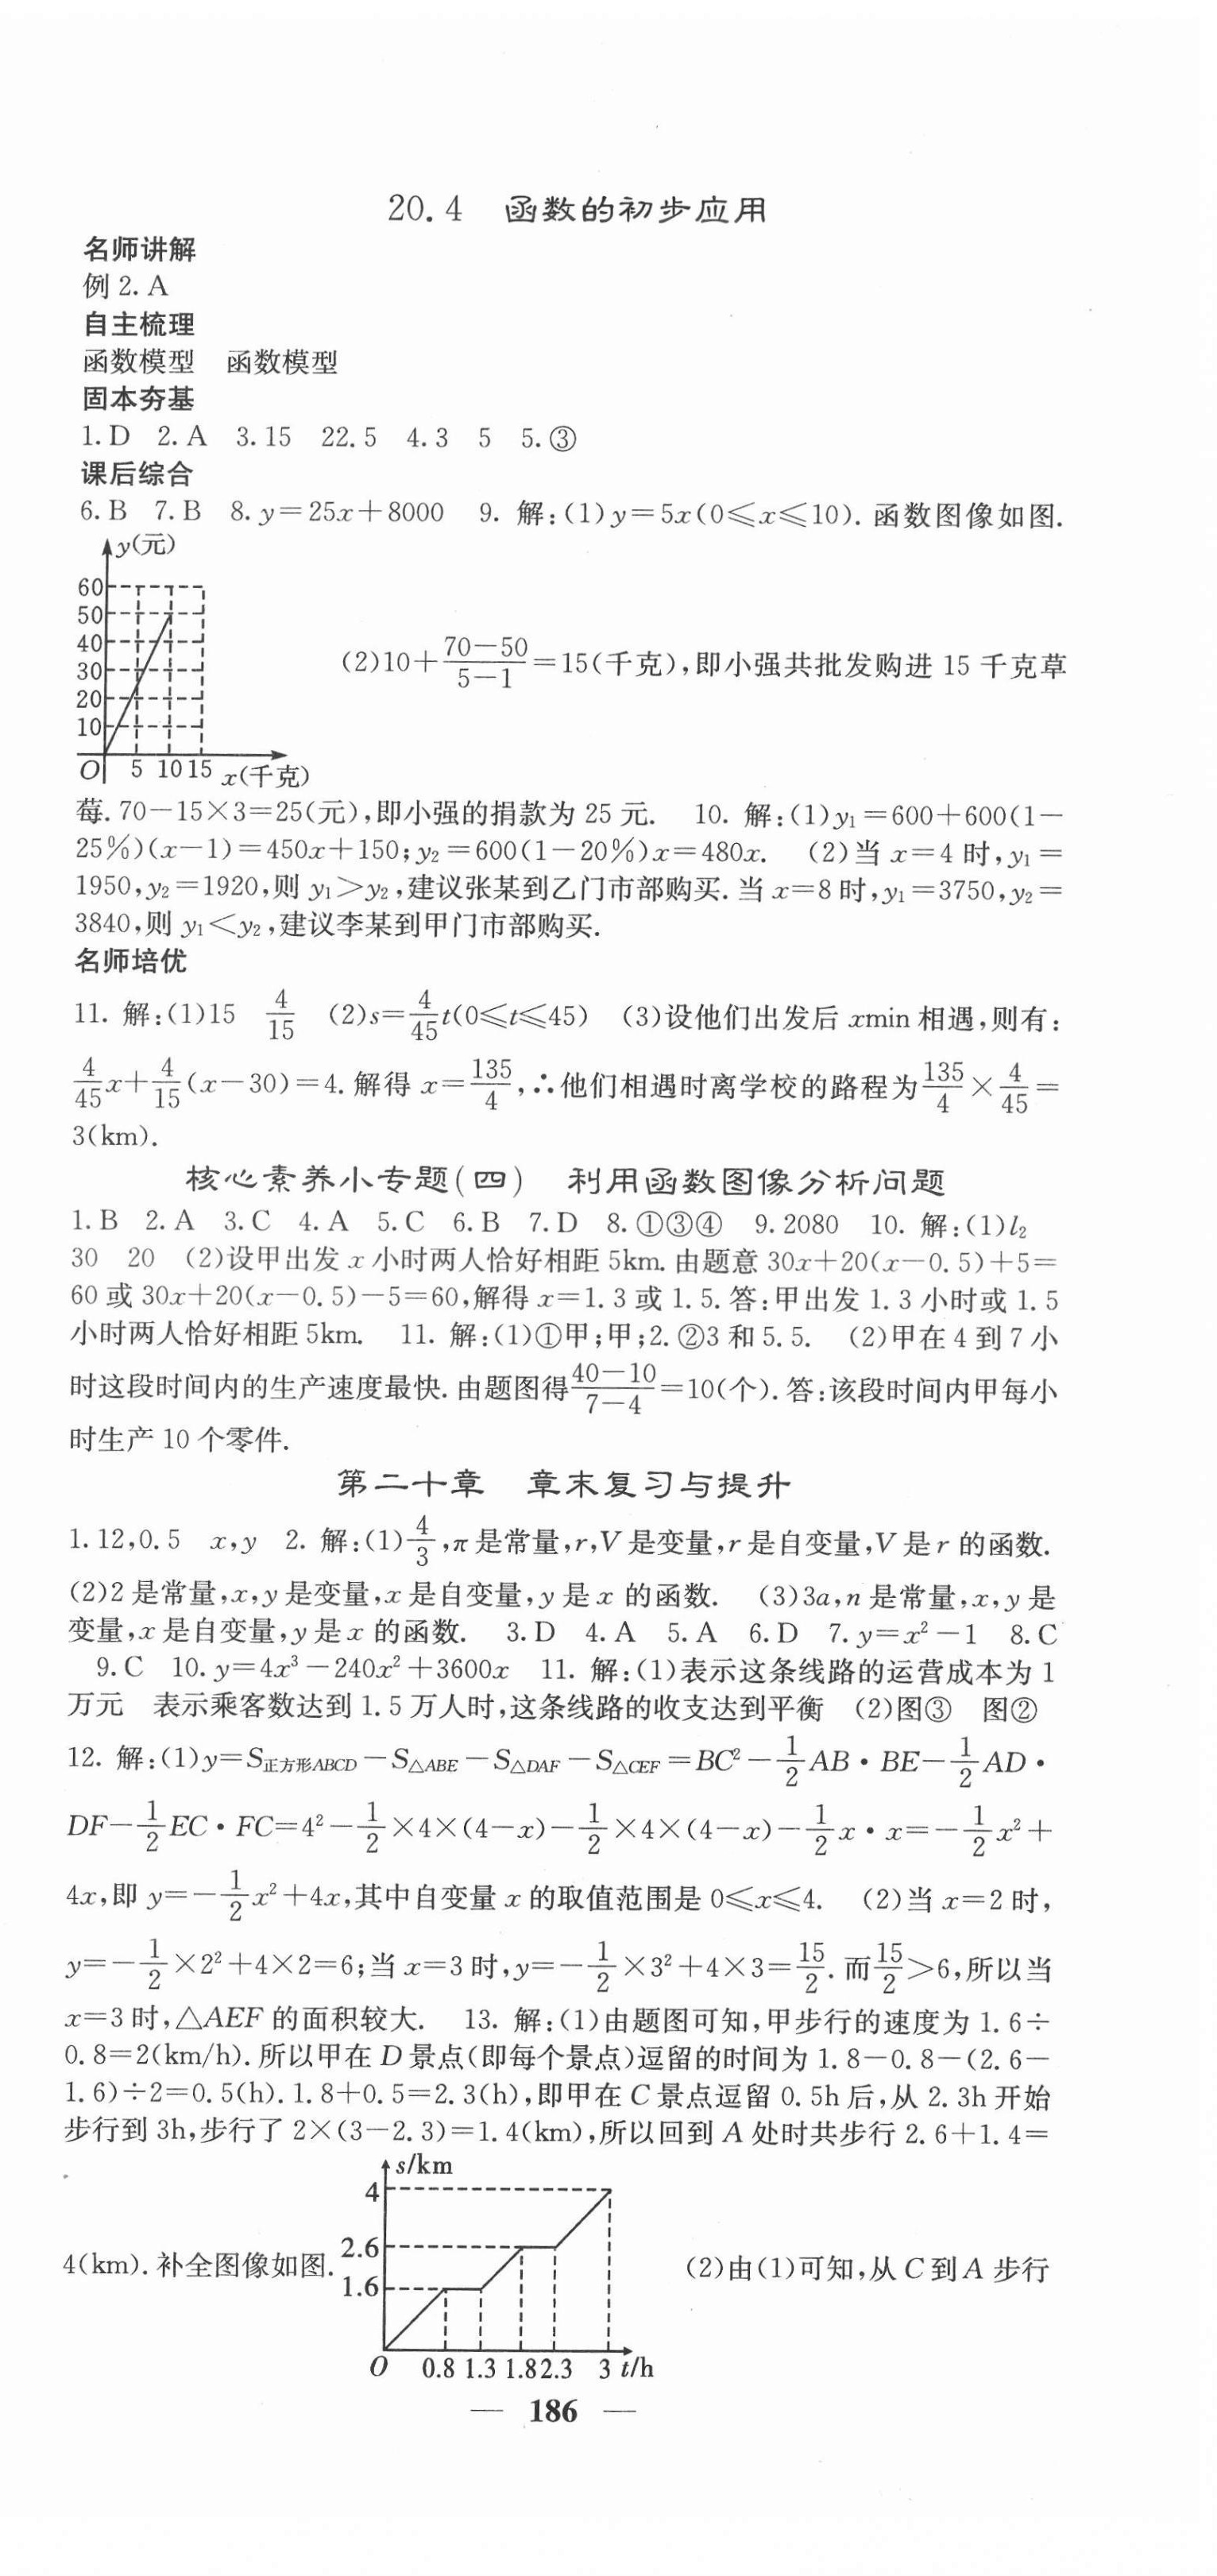 20.4 函数的初步应用
名师讲解
例 2. A
自主梳理
函数模型 函数模型
固本夯基
1. D 2. A 3. 15 22.5 4. 3 5 5. ③
课后综合
6. B 7. B 8. y=25x+8000 9. 解:(1)y=5x(0≤x≤10). 函数图像如图.
y(元)
60
50
40
30
20
10
O 5 10 15 x(千克)
(2)10+\frac{70-50}{5-1}=15(千克),即小强共批发购进 15 千克草
莓. 70-15×3=25(元),即小强的捐款为 25 元. 10. 解:(1)y₁=600+600(1-
25%)(x-1)=450x+150;y₂=600(1-20%)x=480x. (2)当 x=4 时,y₁=
1950,y₂=1920,则 y₁>y₂,建议张某到乙门市部购买. 当 x=8 时,y₁=3750,y₂=
3840,则 y₁<y₂,建议李某到甲门市部购买.
名师培优
11. 解:(1)15 \frac{4}{15} (2)s=\frac{4}{45}t(0≤t≤45) (3)设他们出发后 xmin 相遇,则有:
\frac{4}{45}x+\frac{4}{15}(x-30)=4. 解得 x=\frac{135}{4},∴他们相遇时离学校的路程为\frac{135}{4}×\frac{4}{45}=
3(km).
核心素养小专题(四) 利用函数图像分析问题
1. B 2. A 3. C 4. A 5. C 6. B 7. D 8. ①③④ 9. 2080 10. 解:(1)l₂
30 20 (2)设甲出发 x 小时两人恰好相距 5km. 由题意 30x+20(x-0.5)+5=
60 或 30x+20(x-0.5)-5=60,解得 x=1.3 或 1.5. 答:甲出发 1.3 小时或 1.5
小时两人恰好相距 5km. 11. 解:(1)①甲;甲;2. ②3 和 5.5. (2)甲在 4 到 7 小
时这段时间内的生产速度最快. 由题图得\frac{40-10}{7-4}=10(个). 答:该段时间内甲每小
时生产 10 个零件.
第二十章 章末复习与提升
1. 12,0.5 x,y 2. 解:(1)\frac{4}{3},π是常量,r,V 是变量,r 是自变量,V 是 r 的函数.
(2)2 是常量,x,y 是变量,x 是自变量,y 是 x 的函数. (3)3a,n 是常量,x,y 是
变量,x 是自变量,y 是 x 的函数. 3. D 4. A 5. A 6. D 7. y=x²-1 8. C
9. C 10. y=4x³-240x²+3600x 11. 解:(1)表示这条线路的运营成本为 1
万元 表示乘客数达到 1.5 万人时,这条线路的收支达到平衡 (2)图③ 图②
12. 解:(1)y=S正方形ABCD-S△ABE-S△DAF-S△CEF=BC²-\frac{1}{2}AB·BE-\frac{1}{2}AD·
DF-\frac{1}{2}EC·FC=4²-\frac{1}{2}×4×(4-x)-\frac{1}{2}×4×(4-x)-\frac{1}{2}x·x=-\frac{1}{2}x²+
4x,即 y=-\frac{1}{2}x²+4x,其中自变量 x 的取值范围是 0≤x≤4. (2)当 x=2 时,
y=-\frac{1}{2}×2²+4×2=6;当 x=3 时,y=-\frac{1}{2}×3²+4×3=\frac{15}{2}. 而\frac{15}{2}>6,所以当
x=3 时,△AEF 的面积较大. 13. 解:(1)由题图可知,甲步行的速度为 1.6÷
0.8=2(km/h). 所以甲在 D 景点(即每个景点)逗留的时间为 1.8-0.8-(2.6-
1.6)÷2=0.5(h). 1.8+0.5=2.3(h),即甲在 C 景点逗留 0.5h 后,从 2.3h 开始
步行到 3h,步行了 2×(3-2.3)=1.4(km),所以回到 A 处时共步行 2.6+1.4=
4(km). 补全图像如图.
s/km
4
2.6
1.6
O 0.8 1.3 1.8 2.3 3 t/h
(2)由(1)可知,从 C 到 A 步行
— 186 —